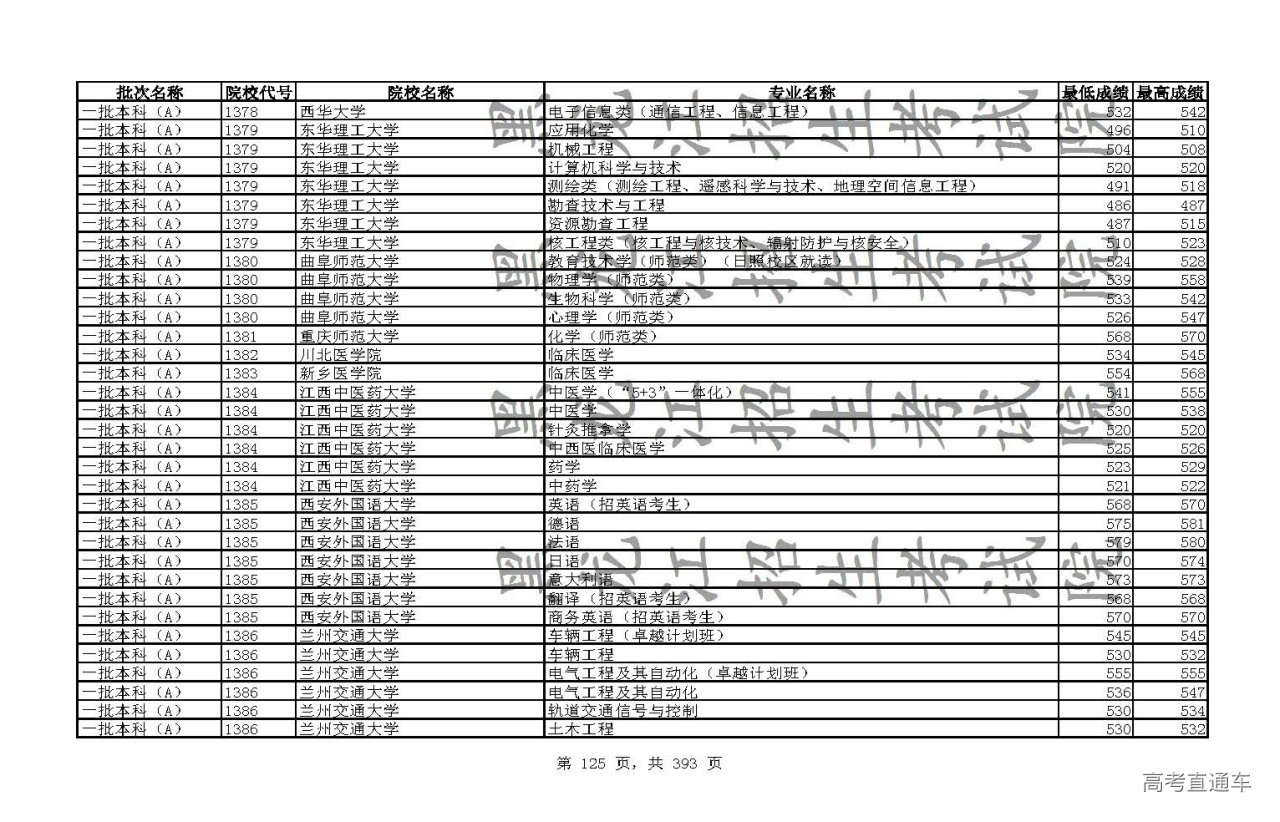 批次名称 院校代号 院校名称 专业名称 最低成绩 最高成绩
一批本科（A） 1378 西华大学 电子信息类（通信工程、信息工程） 532 542
一批本科（A） 1379 东华理工大学 应用化学 496 510
一批本科（A） 1379 东华理工大学 机械工程 504 508
一批本科（A） 1379 东华理工大学 计算机科学与技术 520 520
一批本科（A） 1379 东华理工大学 测绘类（测绘工程、遥感科学与技术、地理空间信息工程） 491 518
一批本科（A） 1379 东华理工大学 勘查技术与工程 486 487
一批本科（A） 1379 东华理工大学 资源勘查工程 487 515
一批本科（A） 1379 东华理工大学 核工程类（核工程与核技术、辐射防护与核安全） 510 523
一批本科（A） 1380 曲阜师范大学 教育技术学（师范类）（日照校区就读） 524 528
一批本科（A） 1380 曲阜师范大学 物理学（师范类） 539 558
一批本科（A） 1380 曲阜师范大学 生物科学（师范类） 533 542
一批本科（A） 1380 曲阜师范大学 心理学（师范类） 526 547
一批本科（A） 1381 重庆师范大学 化学（师范类） 568 570
一批本科（A） 1382 川北医学院 临床医学 534 545
一批本科（A） 1383 新乡医学院 临床医学 554 568
一批本科（A） 1384 江西中医药大学 中医学（“5+3”一体化） 541 555
一批本科（A） 1384 江西中医药大学 中医学 530 538
一批本科（A） 1384 江西中医药大学 针灸推拿学 520 520
一批本科（A） 1384 江西中医药大学 中西医临床医学 525 526
一批本科（A） 1384 江西中医药大学 药学 523 529
一批本科（A） 1384 江西中医药大学 中药学 521 522
一批本科（A） 1385 西安外国语大学 英语（招英语考生） 568 570
一批本科（A） 1385 西安外国语大学 德语 575 581
一批本科（A） 1385 西安外国语大学 法语 579 580
一批本科（A） 1385 西安外国语大学 日语 570 574
一批本科（A） 1385 西安外国语大学 意大利语 573 573
一批本科（A） 1385 西安外国语大学 翻译（招英语考生） 568 568
一批本科（A） 1385 西安外国语大学 商务英语（招英语考生） 570 570
一批本科（A） 1386 兰州交通大学 车辆工程（卓越计划班） 545 545
一批本科（A） 1386 兰州交通大学 车辆工程 530 532
一批本科（A） 1386 兰州交通大学 电气工程及其自动化（卓越计划班） 555 555
一批本科（A） 1386 兰州交通大学 电气工程及其自动化 536 547
一批本科（A） 1386 兰州交通大学 轨道交通信号与控制 530 534
一批本科（A） 1386 兰州交通大学 土木工程 530 532
黑龙江招生考试院
黑龙江招生考试院
黑龙江招生考试院
黑龙江招生考试院
第 125 页，共 393 页
高考直通车